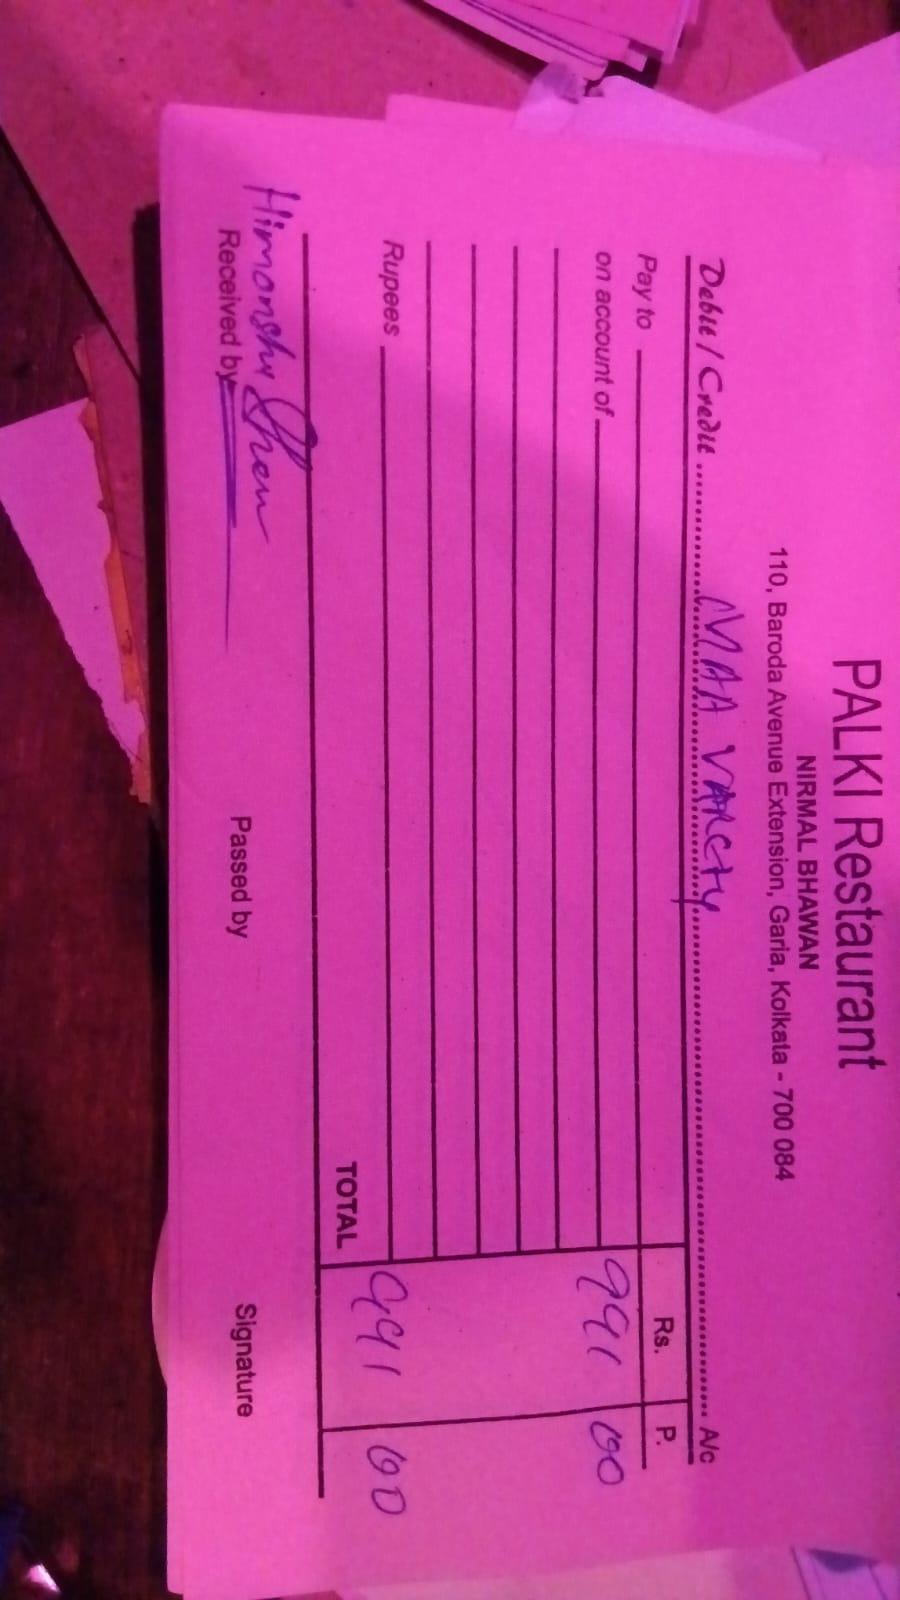 PALKI Restaurant
NIRMAL BHAWAN
110, Baroda Avenue Extension, Garia, Kolkata - 700 084
Debit / Credit MAA VARETY A/c
Rs. P.
Pay to
on account of 991 00
Rupees
TOTAL 991 00
Himanshu Shaw
Received by Passed by Signature